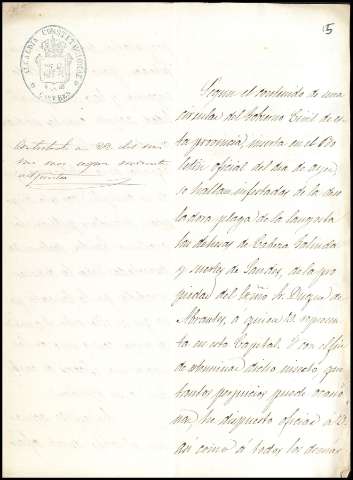 15
ALCALDIA CONSTITUCIONAL
CACERES
Contestada a 22 del mis
mo mes segun minuta
adjunta
Segun el contenido de una
circular del Gobierno Civil de es
ta provincia, inserta en el Bo
letin oficial del dia de ayer,
se hallan infestadas de la deso
ladora plaga de la langosta
las dehesas de Cabeza Galinda
y Suertes de Sande, de la pro
piedad del Exmo. Sr. Duque de
Abrantes, á quien V. represen
ta en esta Capital. Y con el fin
de esterminar dicho insecto que
tantos perjuicios puede ocasio
nar, he dispuesto oficiar á V.
así como á todos los demas